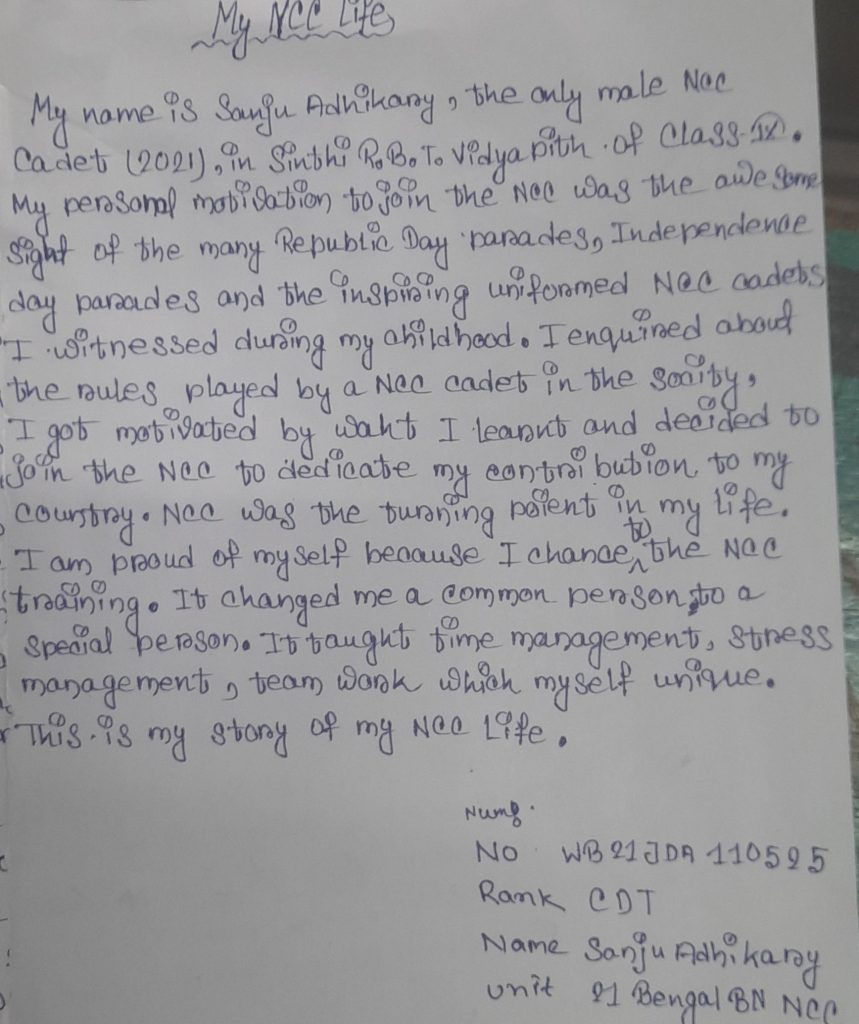 My NCC Life
My name is Sanju Adhikary, the only male Ncc
Cadet (2021), in Sinthi R.B.T. Vidyapith of Class-IX.
My personal motivation to join the NCC was the awesome
sight of the many Republic Day parades, Independence
day parades and the inspiring uniformed NCC cadets
I witnessed during my childhood. I enquired about
the rules played by a NCC cadet in the soaity,
I got motivated by waht I learnt and decided to
join the NCC to dedicate my contribution to my
Country. NCC was the turning poient in my life.
I am proud of myself because I chance to the NCC
training. It changed me a common person to a
special person. It taught time management, stress
management, team work which myself unique.
This is my story of my NCC Life.
No WB21JDA110525
Rank CDT
Name Sanju Adhikary
unit 21 Bengal BN NCC